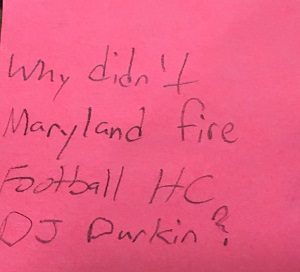 Why didn't
Maryland fire
Football HC
DJ Durkin?